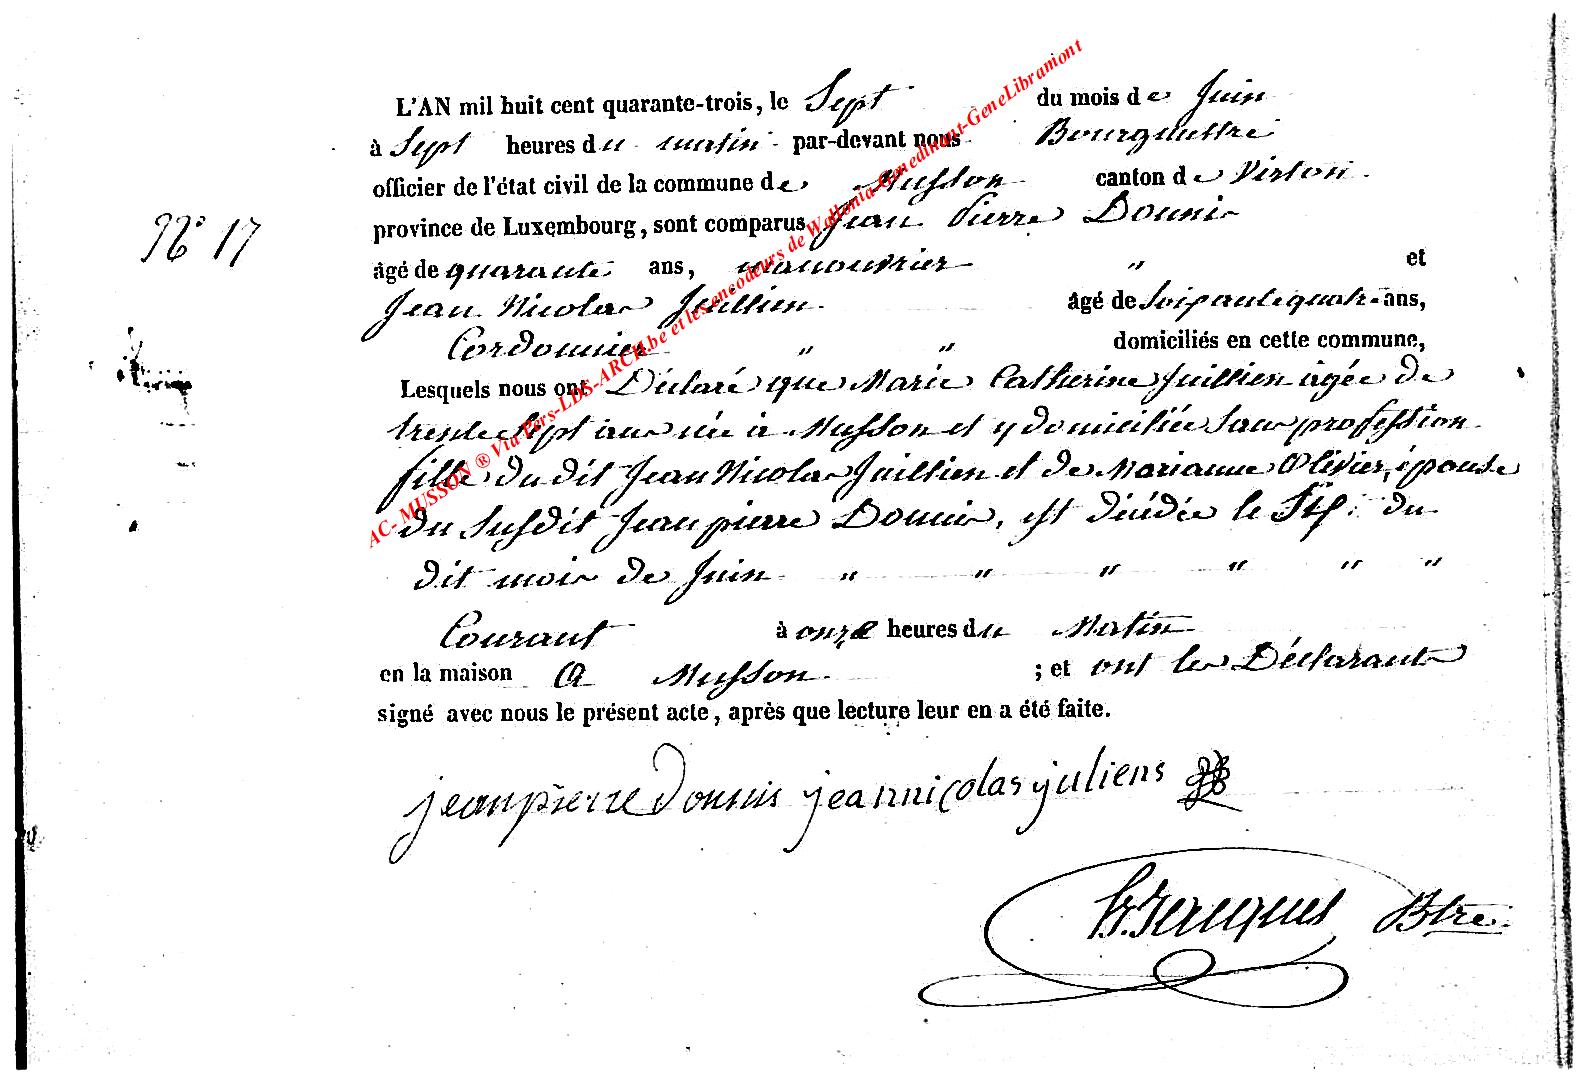 L'AN mil huit cent quarante-trois, le Sept du mois de Juin
à Sept heures du matin par-devant nous Bourgmestre
officier de l'état civil de la commune de Musson canton de Virton
province de Luxembourg, sont comparus Jean Pierre Donnis
N° 17
âgé de quarante ans, manouvrier " et
Jean Nicolas Juillien âgé de Soixante quatre ans,
Cordonnier " " domiciliés en cette commune,
Lesquels nous ont Déclaré que Marie Catherine Juillien agée de
trente Sept ans née à Musson et y domiciliée Sans profession
fille du dit Jean Nicolas Juillien et de Marianne Olivier, épouse
du Susdit Jean pierre Donnis, est décédée le Sept du
dit mois de Juin " " " " " "
Courant à onze heures du Matin
en la maison a Musson ; et ont les Déclarants
signé avec nous le présent acte, après que lecture leur en a été faite.
jean pierre donnis jean nicolas juliens
Jacques Btre
AC- MUSSON ® Via Pers-LDS-ARCH.be et les encodeurs de Wallonia-Genedinant-GeneLibramont